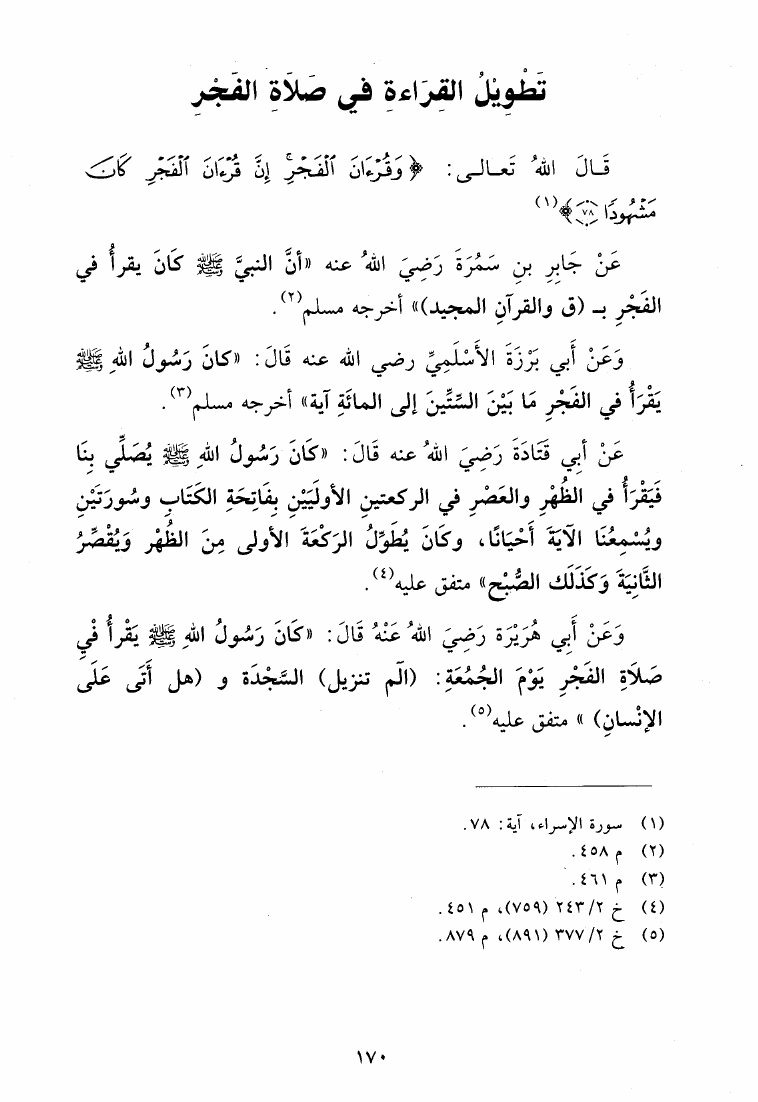 تَطْوِيْلُ القِرَاءةِ في صَلَاةِ الفَجْرِ
قَـالَ اللهُ تَعـالـى: ﴿ وَقُرْءَانَ ٱلْفَجْرِۖ إِنَّ قُرْءَانَ ٱلْفَجْرِ كَانَ
مَشْهُودًا ٧٨﴾(١)
عَنْ جَابِرِ بنِ سَمُرَةَ رَضِيَ اللهُ عنه «أنَّ النبيَّ ﷺ كَانَ يقرأُ في
الفَجْرِ بـ (ق والقرآنِ المجيد)» أخرجه مسلم(٢).
وَعَنْ أَبي بَرْزَةَ الأَسْلَمِيِّ رضي الله عنه قَالَ: «كانَ رَسُولُ اللهِ ﷺ
يَقْرَأُ في الفَجْرِ مَا بَيْنَ السِّتِّينَ إلى المائَةِ آية» أخرجه مسلم(٣).
عَنْ أبي قَتَادَةَ رَضِيَ اللهُ عنه قَالَ: «كَانَ رَسُولُ اللهِ ﷺ يُصَلِّي بِنَا
فَيَقْرَأُ في الظُهْرِ والعَصْرِ في الركعتينِ الأولَيَيْنِ بِفَاتِحَةِ الكتَابِ وسُورَتَيْنِ
ويُسْمِعُنَا الآيَةَ أَحْيَانًا، وكَانَ يُطَوِّلُ الرَكْعَةَ الأولى مِنَ الظُهْرِ وَيُقْصِّرُ
الثَّانِيَةَ وَكَذَلَك الصُّبْح» متفق عليه(٤).
وَعَنْ أَبي هُرَيْرَة رَضِيَ اللهُ عَنْهُ قَالَ: «كَانَ رَسُولُ اللهِ ﷺ يَقْرأُ في
صَلَاةِ الفَجْرِ يَوْمَ الجُمُعَةِ: (الَم تنزيل) السَّجْدَة و (هل أَتَى عَلَى
الإنْسانِ) » متفق عليه(٥).
(١) سورة الإسراء، آية: ٧٨.
(٢) م ٤٥٨.
(٣) م ٤٦١.
(٤) خ ٢/ ٢٤٣ (٧٥٩)، م ٤٥١.
(٥) خ ٢/ ٣٧٧ (٨٩١)، م ٨٧٩.
١٧٠